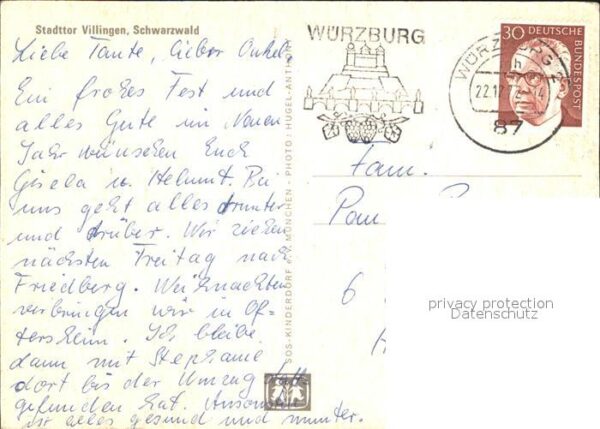 Stadttor Villingen, Schwarzwald
Liebe Tante, lieber Onkel,
Ein frohes Fest und
alles Gute im Neuen
Jahr wünschen Euch
Gisela u. Helmut. Bei
uns geht alles drunter
und drüber. Wir ziehen
nächsten Freitag nach
Friedberg. Weihnachten
verbringen wir in Of=
tersheim. Ich bleibe
dann mit Stephanie
dort bis der Umzug statt
gefunden hat. Ansonsten
ist alles gesund und munter.
SOS-KINDERDORF E.V. MÜNCHEN - PHOTO: HUGEL-ANTHONY
WÜRZBURG
WÜRZBURG 2
h
22.12.72-14
87
30 DEUTSCHE
BUNDESPOST
Fam.
6
privacy protection
Datenschutz